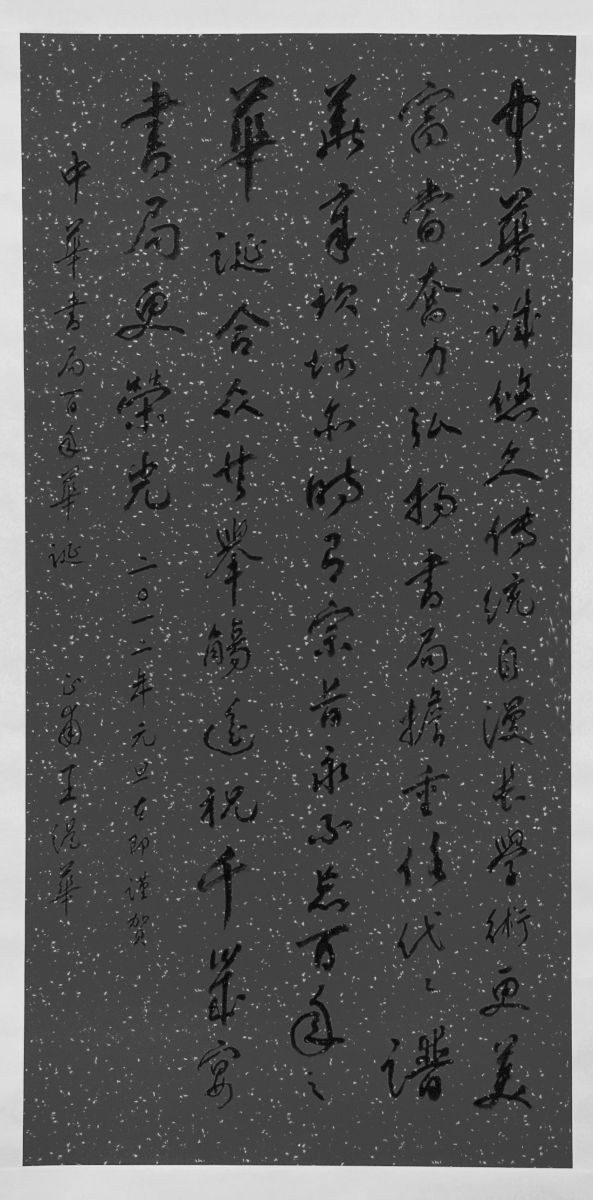 中華誠悠久傳統自漫長學術更美
富當奮力弘揚書局擔重任代〻譜
華章坎坷亦時有宗旨永不忘百年之
華誕合众共舉觴遥祝千歲宴
書局更榮光
二〇一二年元旦 即謹賀
中華書局百年華誕
王 華